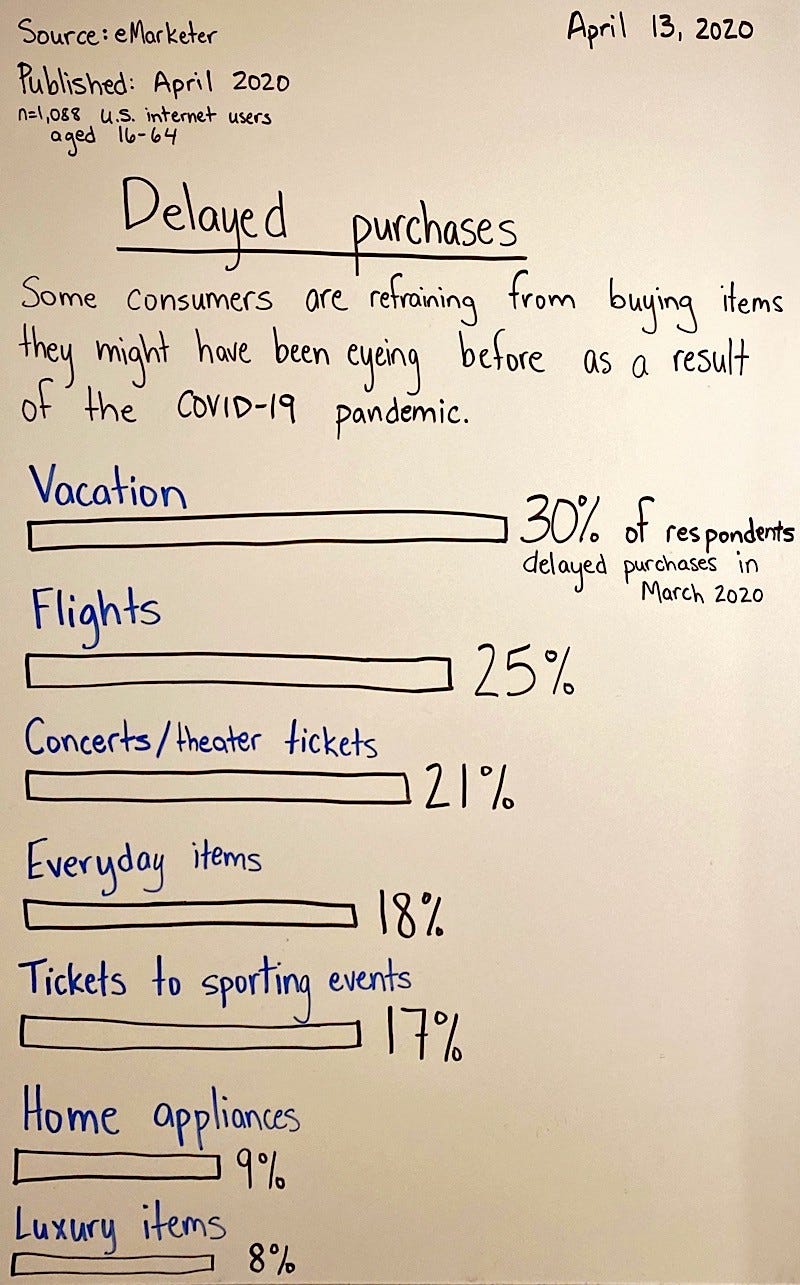 Source: eMarketer
April 13, 2020
Published: April 2020
n=1,088 U.S. internet users
aged 16-64
Delayed purchases
Some consumers are refraining from buying items
they might have been eyeing before as a result
of the COVID-19 pandemic.
Vacation
30% of respondents
delayed purchases in
March 2020
Flights
25%
Concerts/theater tickets
21%
Everyday items
18%
Tickets to sporting events
17%
Home appliances
9%
Luxury items
8%